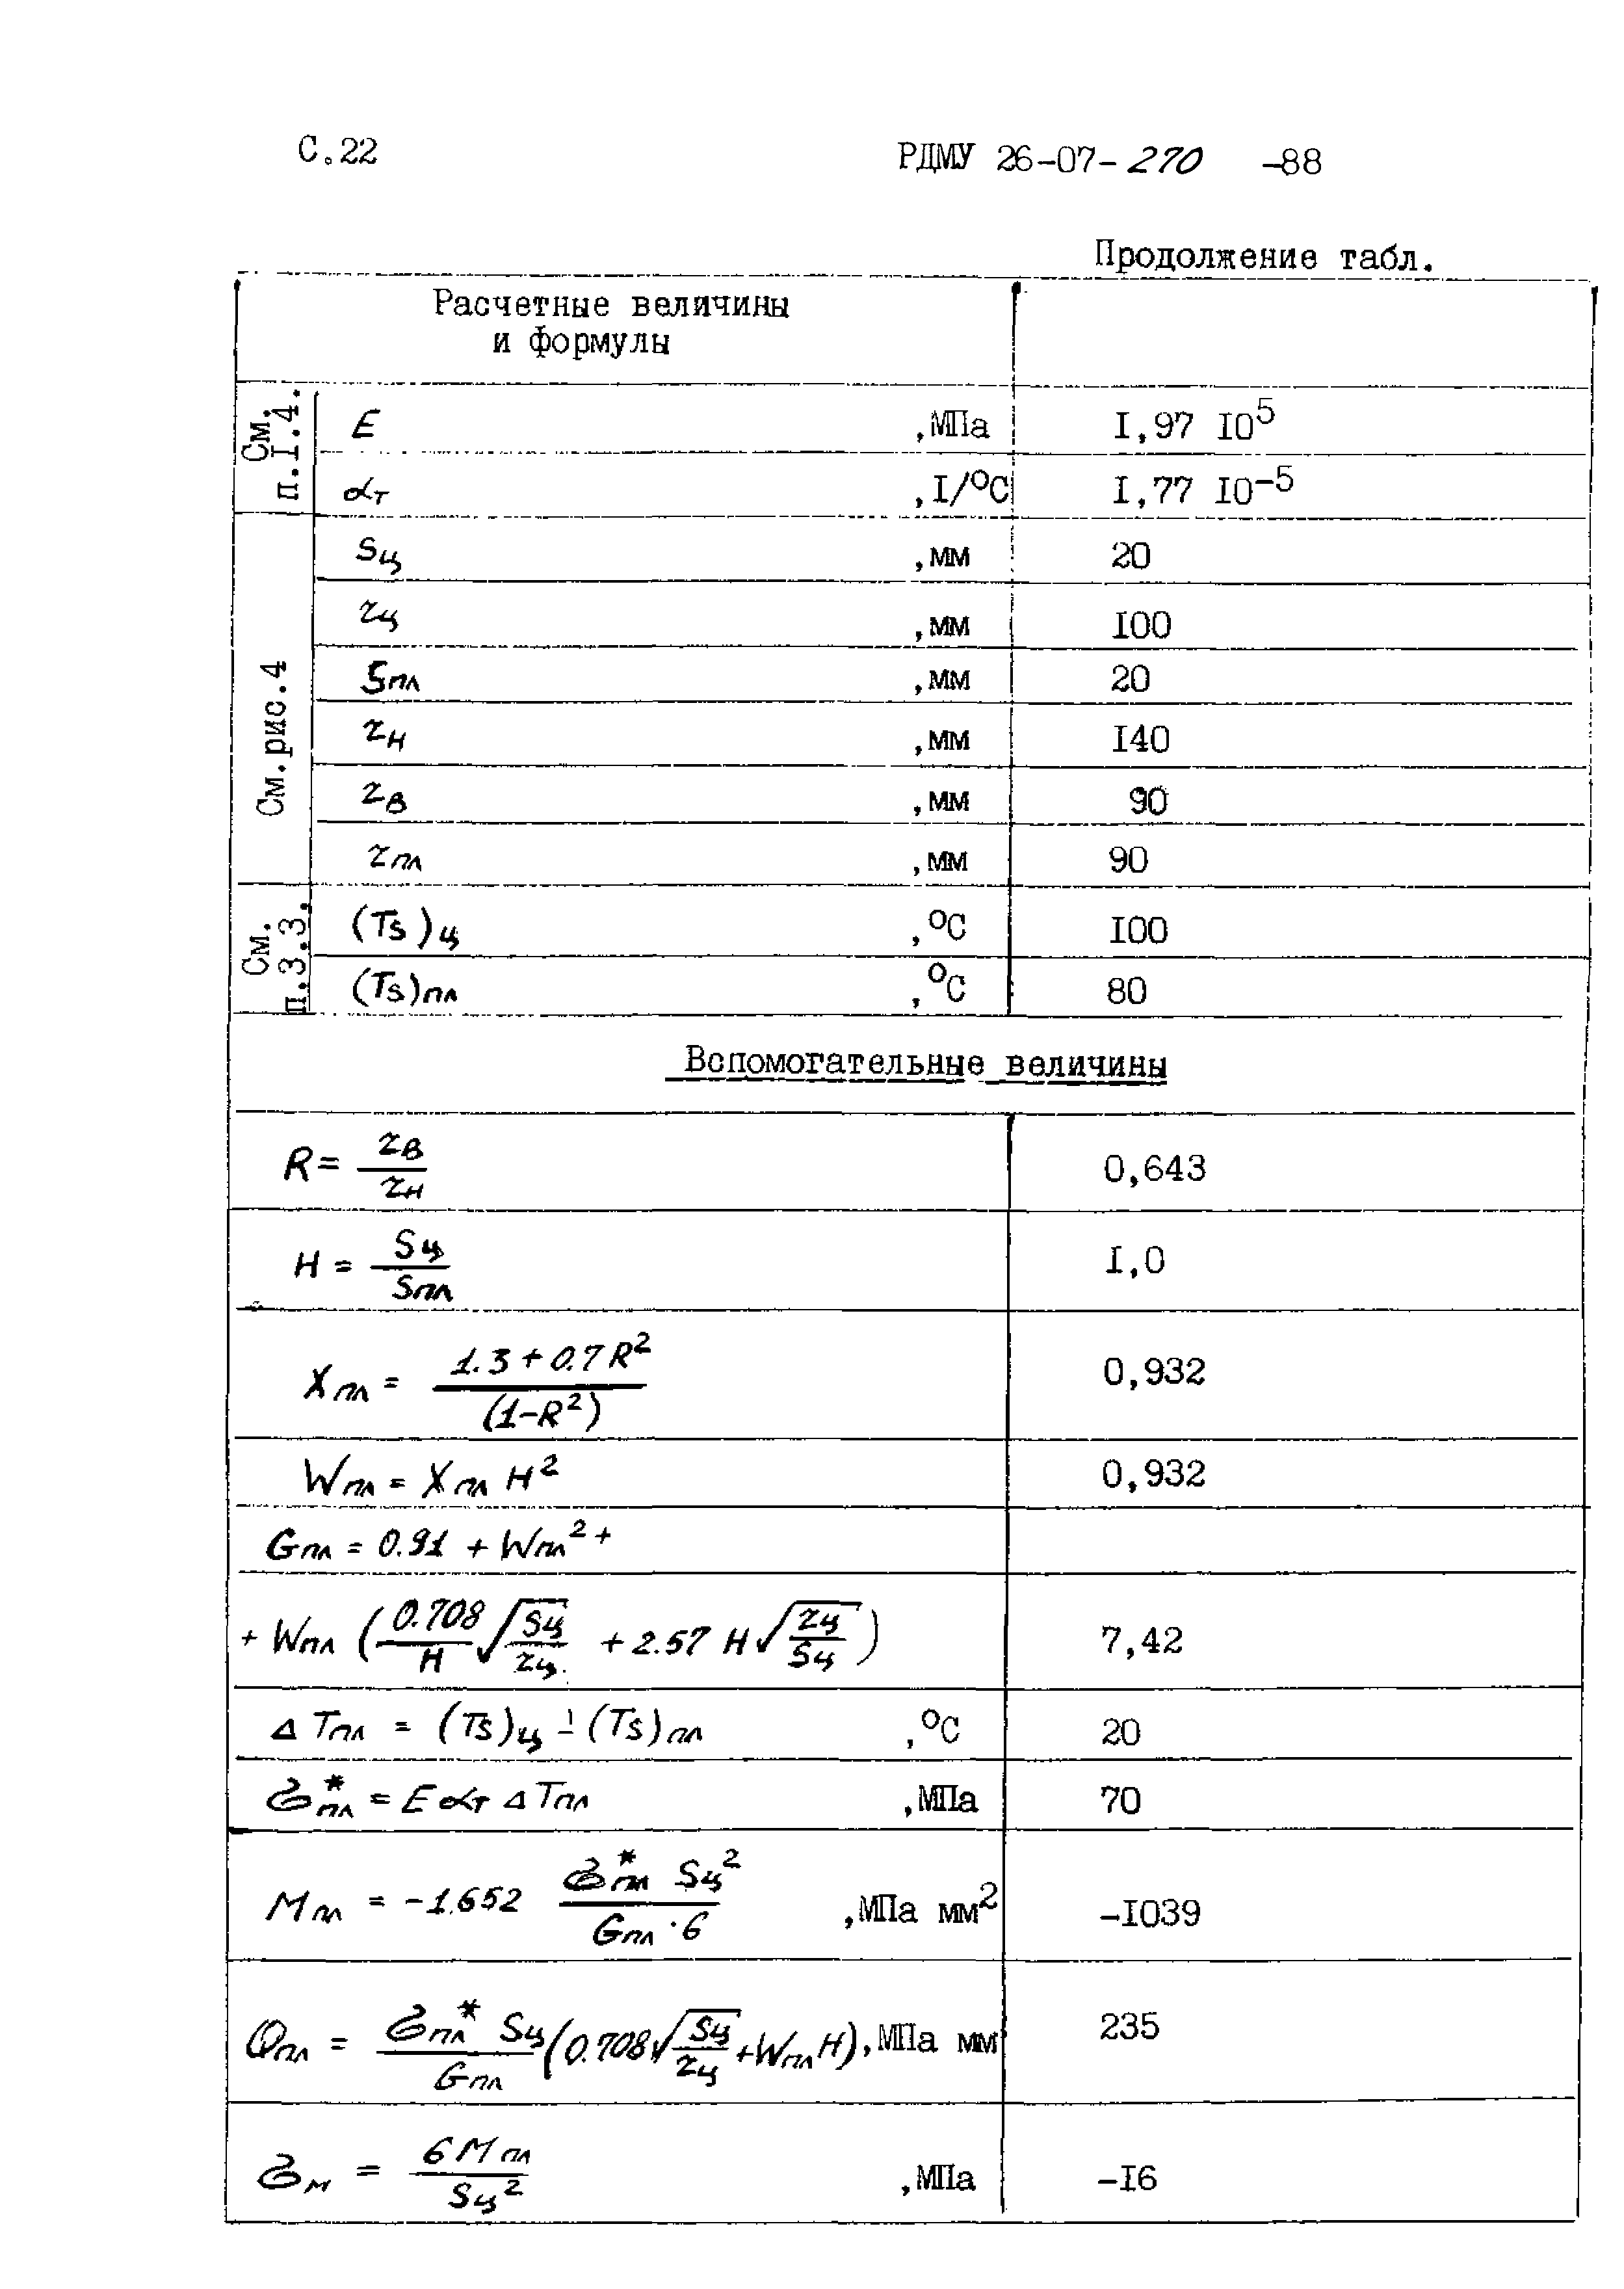 С.22 РДМУ 26-07-270 -88
Продолжение табл.
Расчетные величины
и формулы
См. п.I.4.
E ,МПа I,97 I0⁵
αт ,I/°С I,77 I0⁻⁵
См.рис.4
Sц ,мм 20
rц ,мм I00
Sпл ,мм 20
rн ,мм I40
rв ,мм 90
rпл ,мм 90
См. п.3.3.
(Ts)ц ,°С I00
(Ts)пл ,°С 80
Вспомогательные величины
R = rв / rн 0,643
H = Sц / Sпл I,0
Xпл = 1.3 + 0.7 R² / (1-R²) 0,932
Wпл = Xпл H² 0,932
Gпл = 0.91 + Wпл² +
+ Wпл (0.708 / H √(Sц / rц) + 2.57 H √(rц / Sц)) 7,42
Δ Tпл = (Ts)ц - (Ts)пл ,°С 20
σ*пл = E αт Δ Tпл ,МПа 70
Mпл = -1.652 σ*пл Sц² / Gпл · 6 ,МПа мм² -I039
Qпл = σпл* Sц / Gпл (0.708 √(Sц / rц) + Wпл H), МПа мм 235
σм = 6 Mпл / Sц² ,МПа -I6